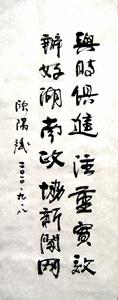 與時俱進注重實效
辦好湖南政協新聞网
欧陽斌
二〇一〇.九.八